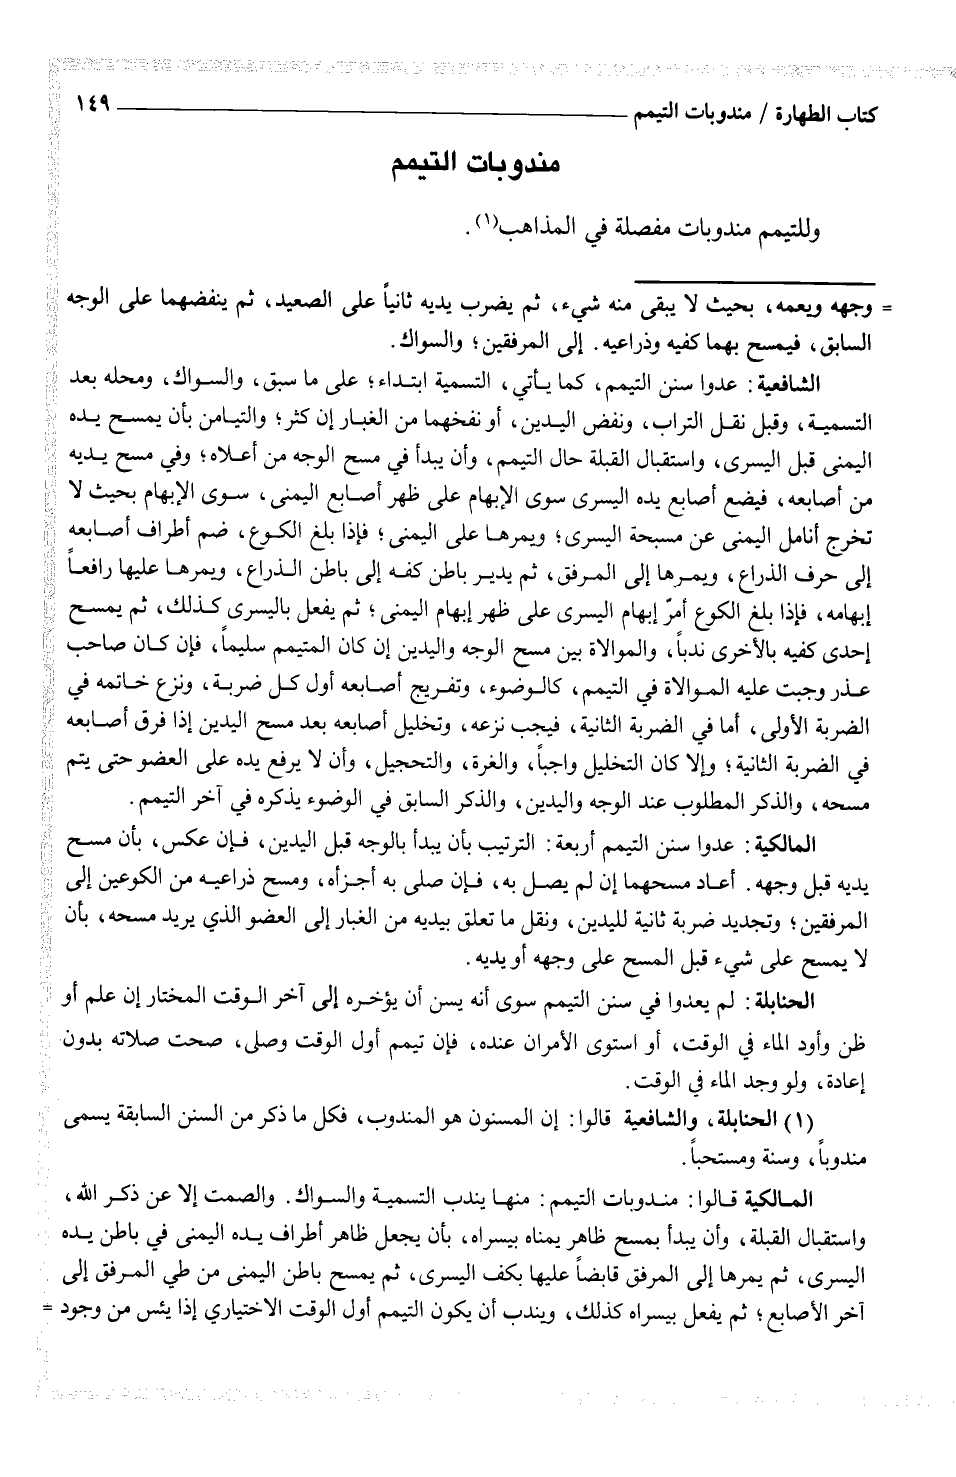 كتاب الطهارة / مندوبات التيمم ــــــــــــــــــ ١٤٩
مندوبات التيمم
وللتيمم مندوبات مفصلة في المذاهب(١).
= وجهه ويعمه، بحيث لا يبقى منه شيء، ثم يضرب يديه ثانياً على الصعيد، ثم ينفضهما على الوجه
السابق، فيمسح بهما كفيه وذراعيه. إلى المرفقين؛ والسواك.
الشافعية: عدوا سنن التيمم، كما يأتي، التسمية ابتداء؛ على ما سبق، والسواك، ومحله بعد
التسمية، وقبل نقل التراب، ونفض اليدين، أو نفخهما من الغبار إن كثر؛ والتيامن بأن يمسح يده
اليمنى قبل اليسرى، واستقبال القبلة حال التيمم، وأن يبدأ في مسح الوجه من أعلاه؛ وفي مسح يديه
من أصابعه، فيضع أصابع يده اليسرى سوى الإبهام على ظهر أصابع اليمنى، سوى الإبهام بحيث لا
تخرج أنامل اليمنى عن مسبحة اليسرى؛ ويمرها على اليمنى؛ فإذا بلغ الكوع، ضم أطراف أصابعه
إلى حرف الذراع، ويمرها إلى المرفق، ثم يدير باطن كفه إلى باطن الذراع، ويمرها عليها رافعاً
إبهامه، فإذا بلغ الكوع أمرّ إبهام اليسرى على ظهر إبهام اليمنى؛ ثم يفعل باليسرى كذلك، ثم يمسح
إحدى كفيه بالأخرى ندباً، والموالاة بين مسح الوجه واليدين إن كان المتيمم سليماً، فإن كان صاحب
عذر وجبت عليه الموالاة في التيمم، كالوضوء، وتفريج أصابعه أول كل ضربة، ونزع خاتمه في
الضربة الأولى، أما في الضربة الثانية، فيجب نزعه، وتخليل أصابعه بعد مسح اليدين إذا فرق أصابعه
في الضربة الثانية؛ وإلا كان التخليل واجباً، والغرة، والتحجيل، وأن لا يرفع يده على العضو حتى يتم
مسحه، والذكر المطلوب عند الوجه واليدين، والذكر السابق في الوضوء يذكره في آخر التيمم.
المالكية: عدوا سنن التيمم أربعة: الترتيب بأن يبدأ بالوجه قبل اليدين، فإن عكس، بأن مسح
يديه قبل وجهه. أعاد مسحهما إن لم يصل به، فإن صلى به أجزأه، ومسح ذراعيه من الكوعين إلى
المرفقين؛ وتجديد ضربة ثانية لليدين، ونقل ما تعلق بيديه من الغبار إلى العضو الذي يريد مسحه، بأن
لا يمسح على شيء قبل المسح على وجهه أو يديه.
الحنابلة: لم يعدوا في سنن التيمم سوى أنه يسن أن يؤخره إلى آخر الوقت المختار إن علم أو
ظن وأود الماء في الوقت، أو استوى الأمران عنده، فإن تيمم أول الوقت وصلى، صحت صلاته بدون
إعادة، ولو وجد الماء في الوقت.
(١) الحنابلة، والشافعية قالوا: إن المسنون هو المندوب، فكل ما ذكر من السنن السابقة يسمى
مندوباً، وسنة ومستحباً.
المالكية قالوا: مندوبات التيمم: منها يندب التسمية والسواك. والصمت إلا عن ذكر الله،
واستقبال القبلة، وأن يبدأ بمسح ظاهر يمناه بيسراه، بأن يجعل ظاهر أطراف يده اليمنى في باطن يده
اليسرى، ثم يمرها إلى المرفق قابضاً عليها بكف اليسرى، ثم يمسح باطن اليمنى من طي المرفق إلى
آخر الأصابع؛ ثم يفعل بيسراه كذلك، ويندب أن يكون التيمم أول الوقت الاختياري إذا يئس من وجود =